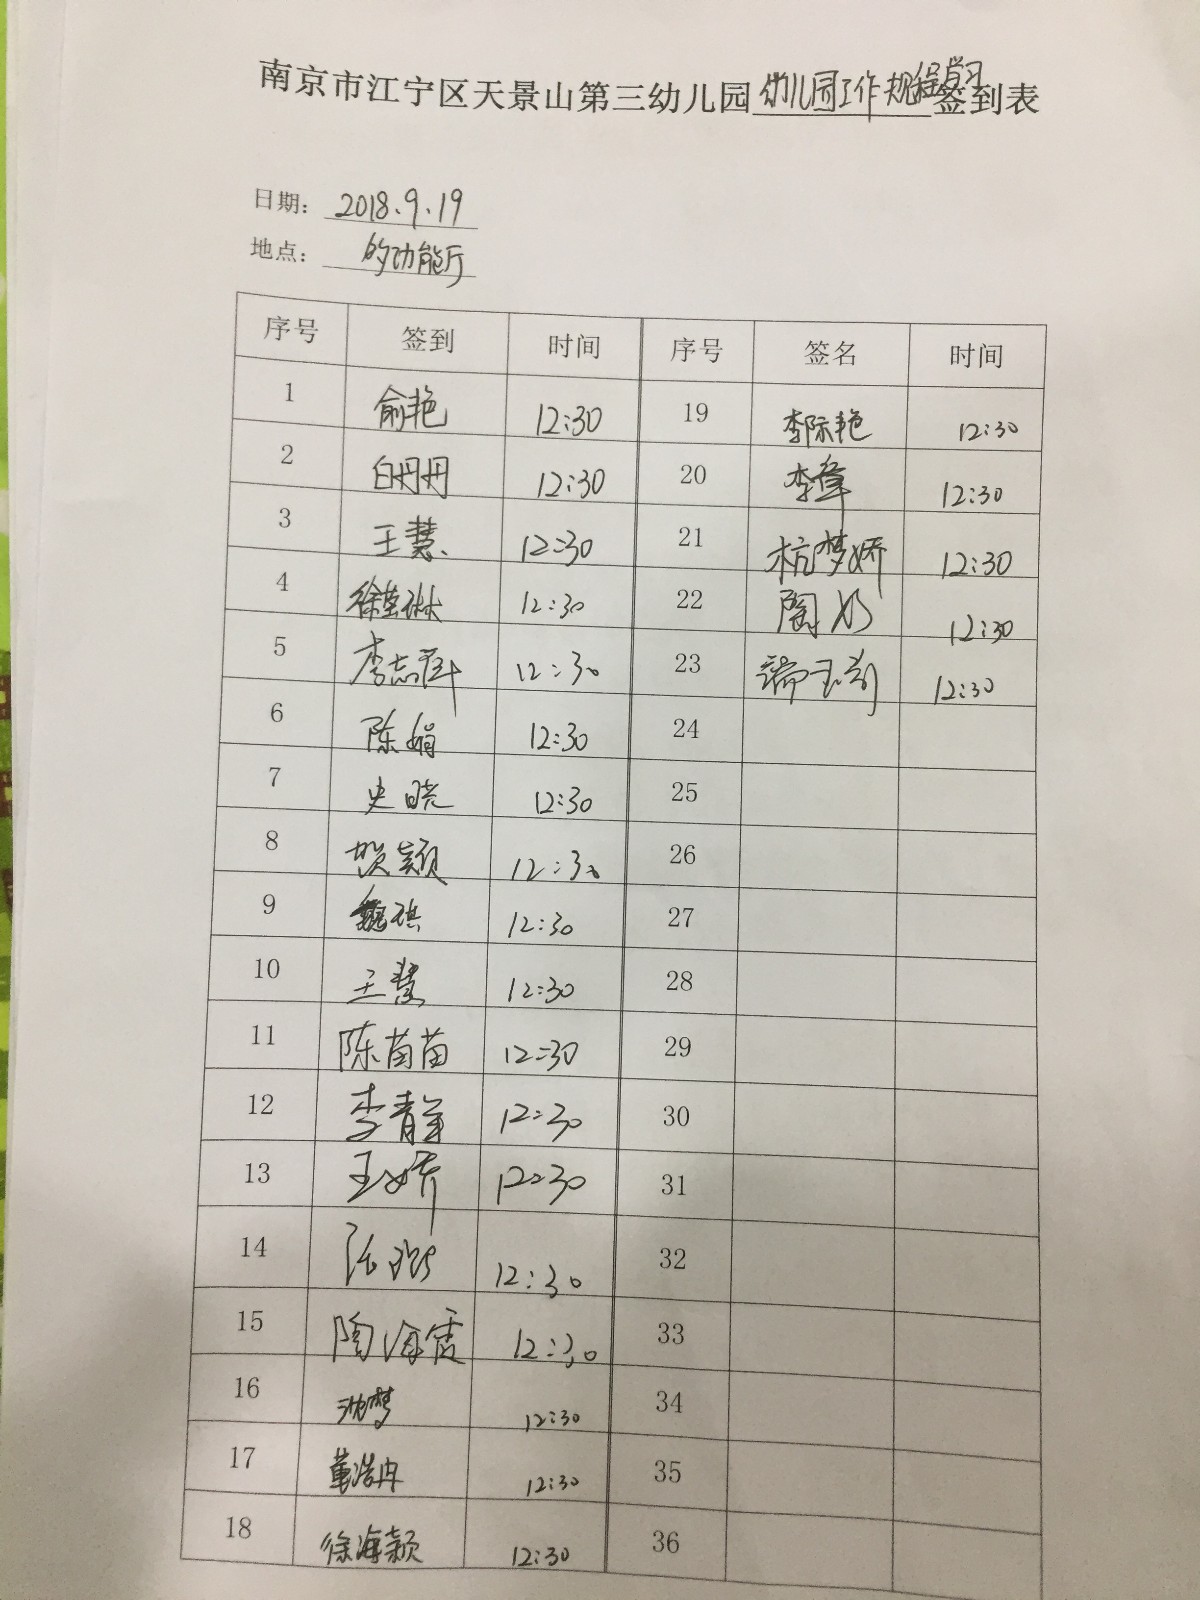 南京市江宁区天景山第三幼儿园幼儿园工作规程学习签到表
日期： 2018.9.19
地点： 多功能厅
序号 签到 时间 序号 签名 时间
1 俞艳 12:30 19 李际艳 12:30
2 白丹丹 12:30 20 李 12:30
3 王慧 12:30 21 杭梦娇 12:30
4 徐 琳 12:30 22 陶 12:30
5 李志 12:30 23 端玉 12:30
6 陈娟 12:30 24
7 史晓 12:30 25
8 贺颖 12:30 26
9 魏琪 12:30 27
10 王慧 12:30 28
11 陈苗苗 12:30 29
12 李青 12:30 30
13 王娇 12:30 31
14 12:30 32
15 陶海霞 12:30 33
16 沈梦 12:30 34
17 董浩冉 12:30 35
18 徐海颖 12:30 36